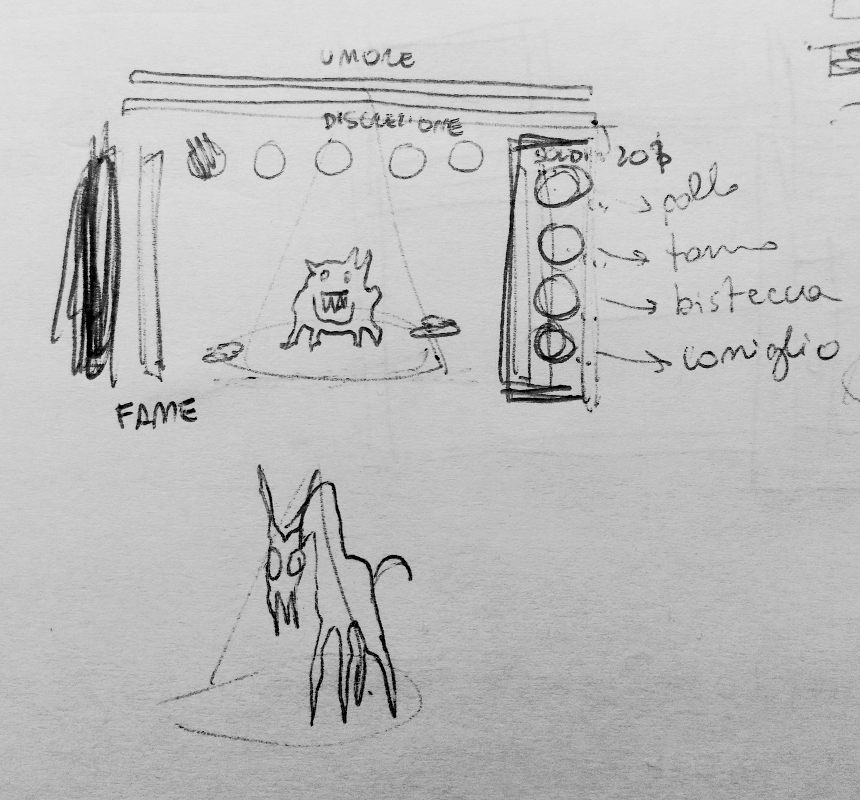 UMORE
DISCREZIONE
SOLDI 20$
→ pollo
→ tonno
→ bistecca
→ coniglio
FAME